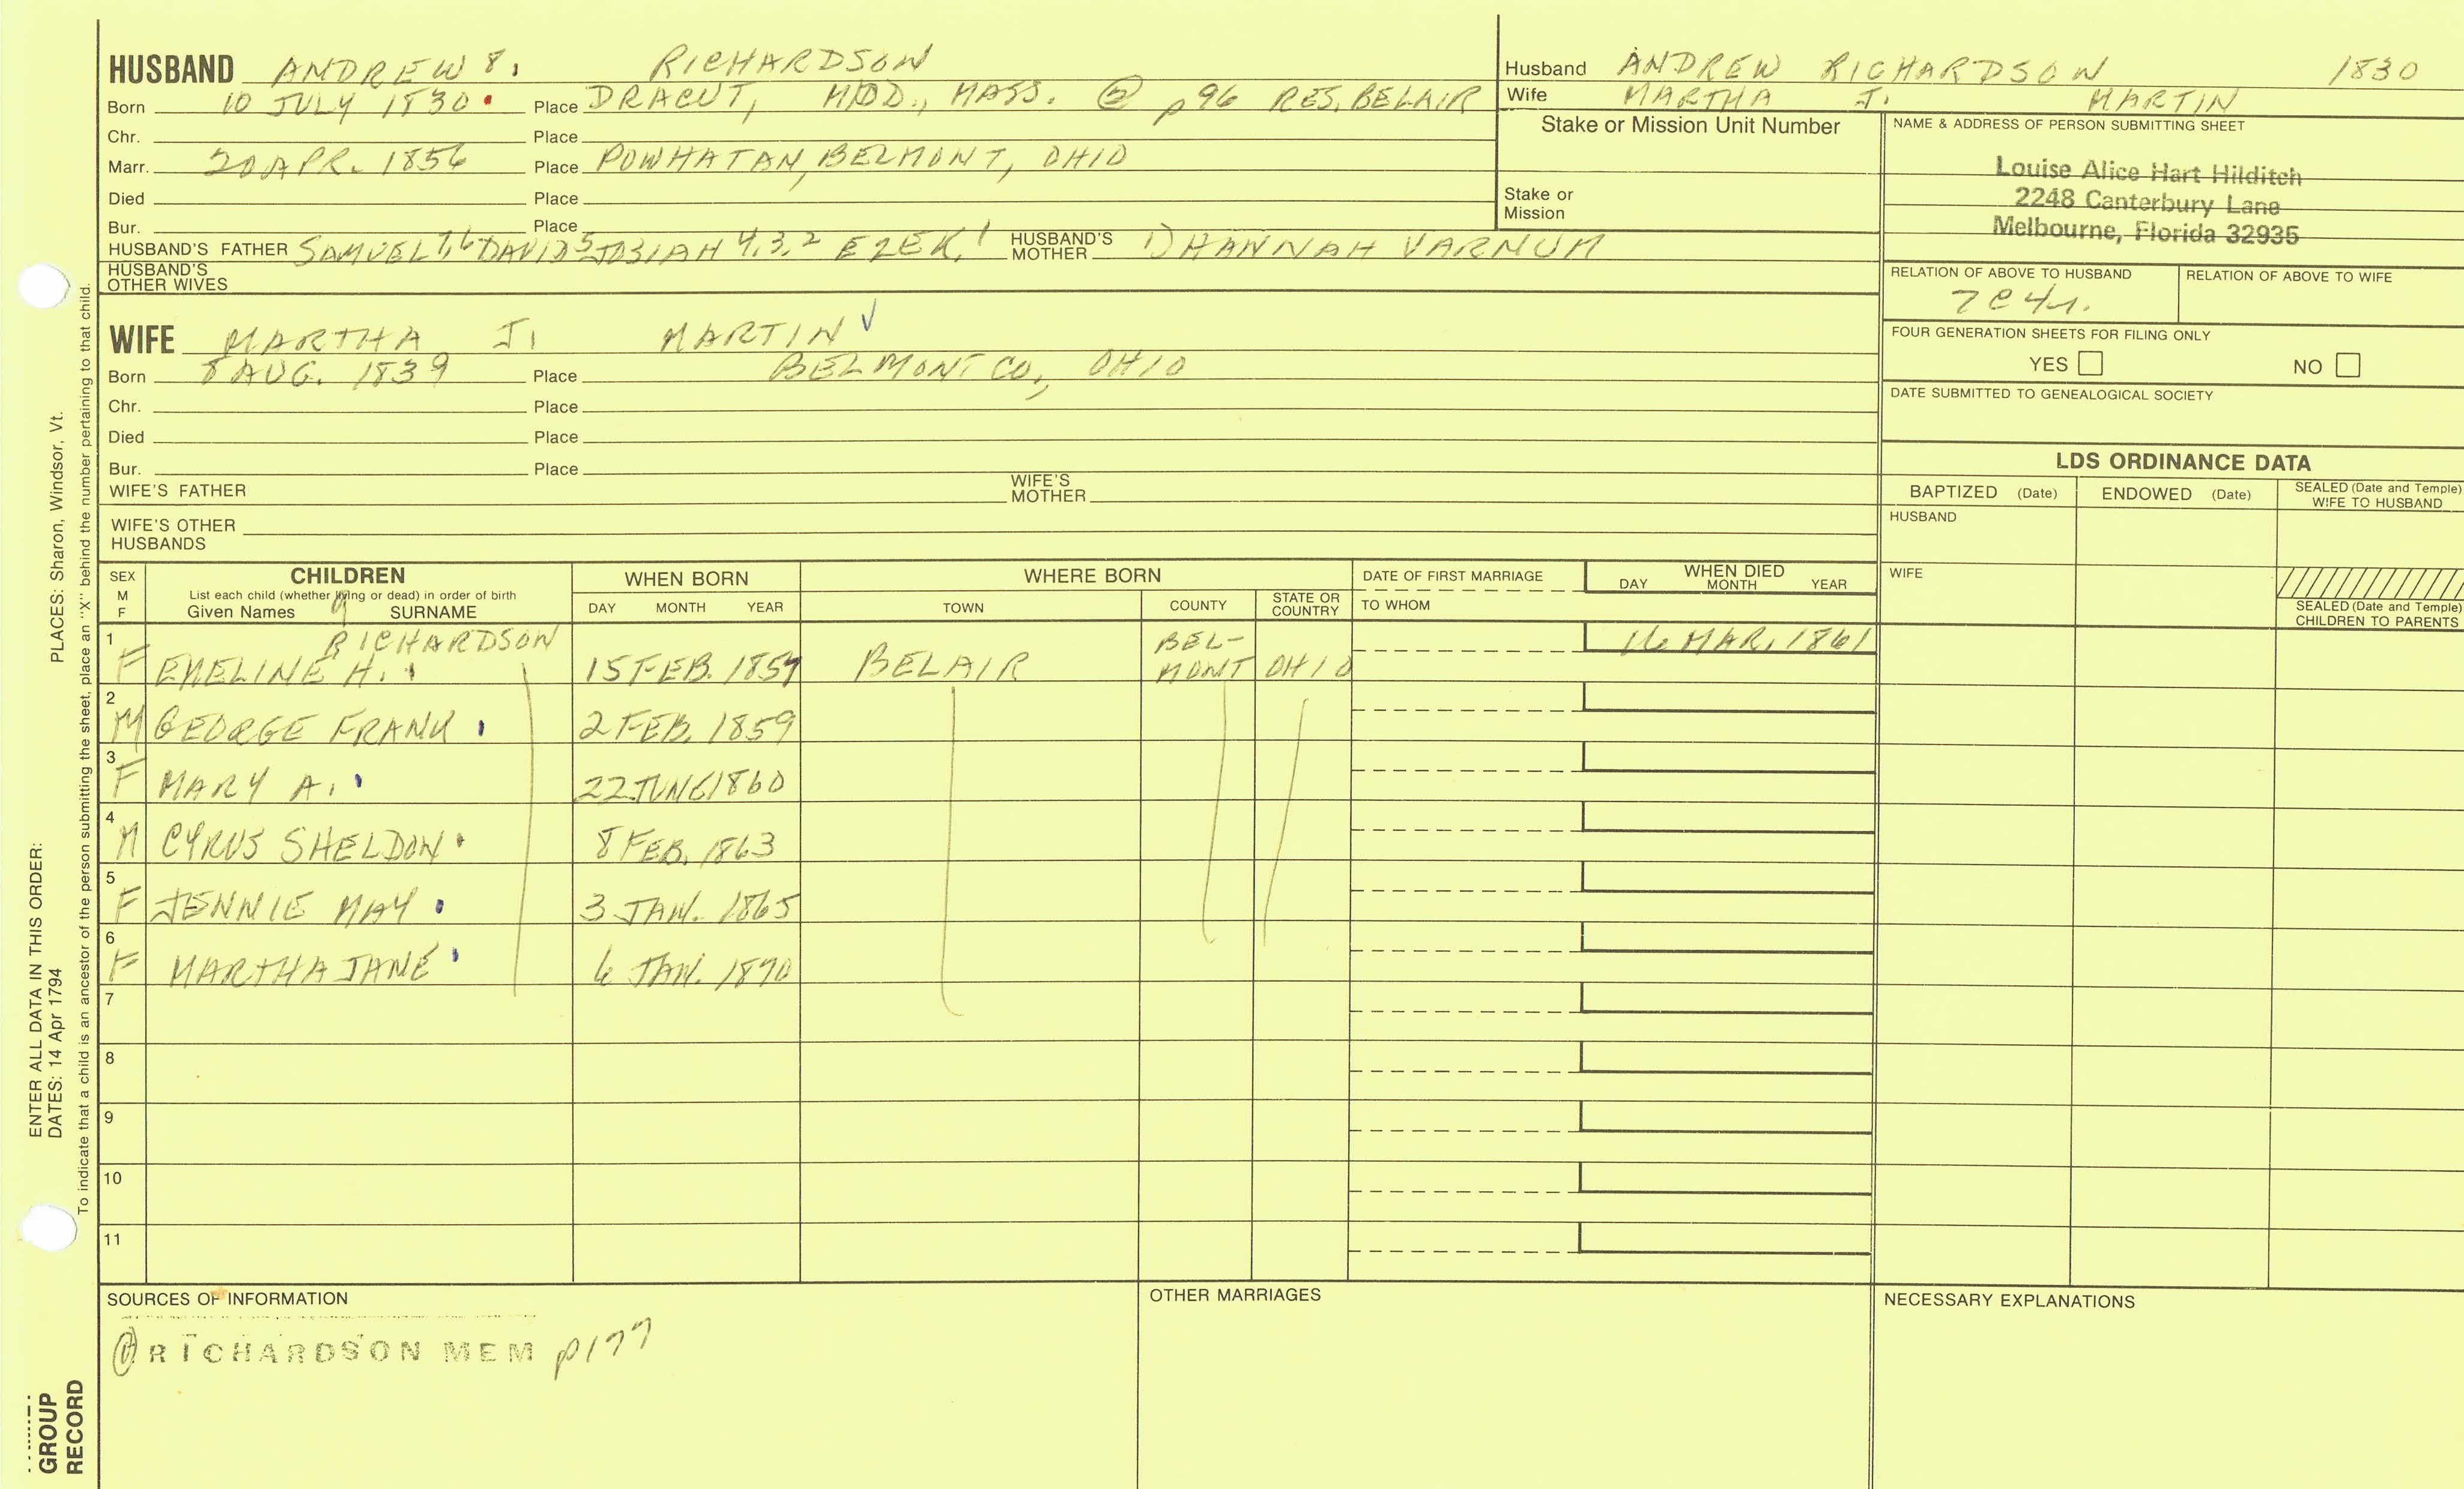 HUSBAND ANDREW 8. RICHARDSON
Born 10 JULY 1830 Place DRACUT, MIDD., MASS. @ p 96 RES. BELAIR
Chr. Place
Marr. 20 APR. 1856 Place POWHATAN, BELMONT, OHIO
Died Place
Bur. Place
HUSBAND'S FATHER SAMUEL 7,6 DAVID 5 JOSIAH 4,3,2 EZEK. 1 HUSBAND'S MOTHER 1) HANNAH VARNUM
HUSBAND'S OTHER WIVES
WIFE MARTHA J. MARTIN √
Born 8 AUG. 1839 Place BELMONT CO., OHIO
Chr. Place
Died Place
Bur. Place
WIFE'S FATHER WIFE'S MOTHER
WIFE'S OTHER HUSBANDS
Husband ANDREW RICHARDSON 1830
Wife MARTHA J. MARTIN
Stake or Mission Unit Number
Stake or Mission
NAME & ADDRESS OF PERSON SUBMITTING SHEET
Louise Alice Hart Hilditch
2248 Canterbury Lane
Melbourne, Florida 32935
RELATION OF ABOVE TO HUSBAND RELATION OF ABOVE TO WIFE
7C4r.
FOUR GENERATION SHEETS FOR FILING ONLY
YES NO
DATE SUBMITTED TO GENEALOGICAL SOCIETY
LDS ORDINANCE DATA
BAPTIZED (Date) ENDOWED (Date) SEALED (Date and Temple) WIFE TO HUSBAND
HUSBAND
WIFE
SEALED (Date and Temple) CHILDREN TO PARENTS
SEX M F CHILDREN WHEN BORN WHERE BORN DATE OF FIRST MARRIAGE WHEN DIED
List each child (whether living or dead) in order of birth
Given Names SURNAME DAY MONTH YEAR TOWN COUNTY STATE OR COUNTRY TO WHOM DAY MONTH YEAR
9
1 F EMELINE H. RICHARDSON 15 FEB. 1857 BELAIR BEL-MONT OHIO 16 MAR. 1861
2 M GEORGE FRANK 2 FEB. 1859
3 F MARY A. 22 JUNE 1860
4 M CYRUS SHELDON 8 FEB. 1863
5 F JENNIE MAY 3 JAN. 1865
6 F MARTHA JANE 6 JAN. 1870
7
8
9
10
11
SOURCES OF INFORMATION
@ RICHARDSON MEM p177
OTHER MARRIAGES
NECESSARY EXPLANATIONS
PLACES: Sharon, Windsor, Vt.
To indicate that a child is an ancestor of the person submitting the sheet, place an "X" behind the number pertaining to that child.
ENTER ALL DATA IN THIS ORDER:
DATES: 14 Apr 1794
GROUP
RECORD